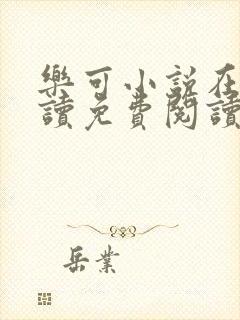 樂可小說在
讀免費閱讀
岳業